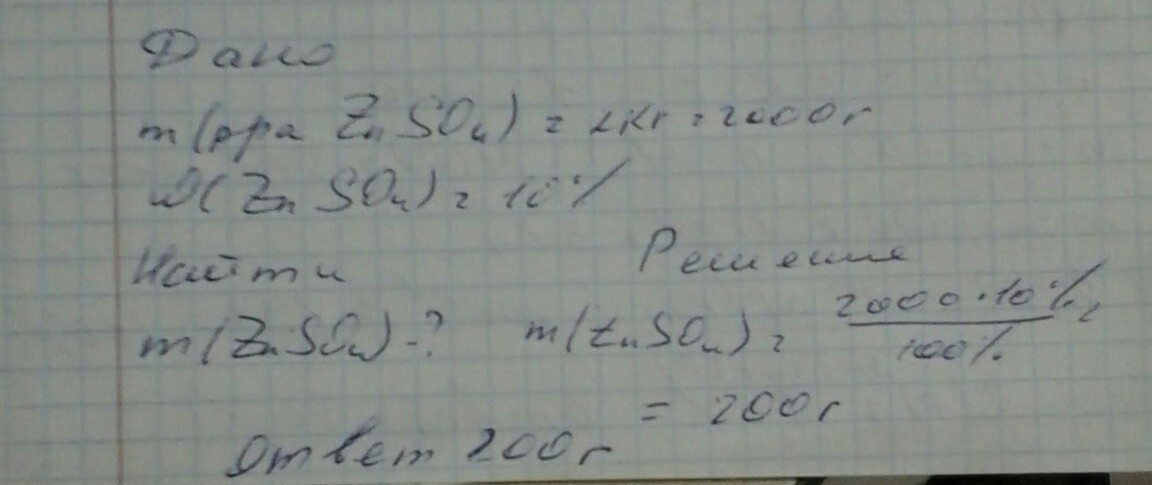 Дано
m(рра ZnSO₄) = 2кг = 2000г
ω(ZnSO₄) = 10%
Найти Решение
m(ZnSO₄)-? m(ZnSO₄) = 2000·10% / 100% =
= 200г
Ответ 200г